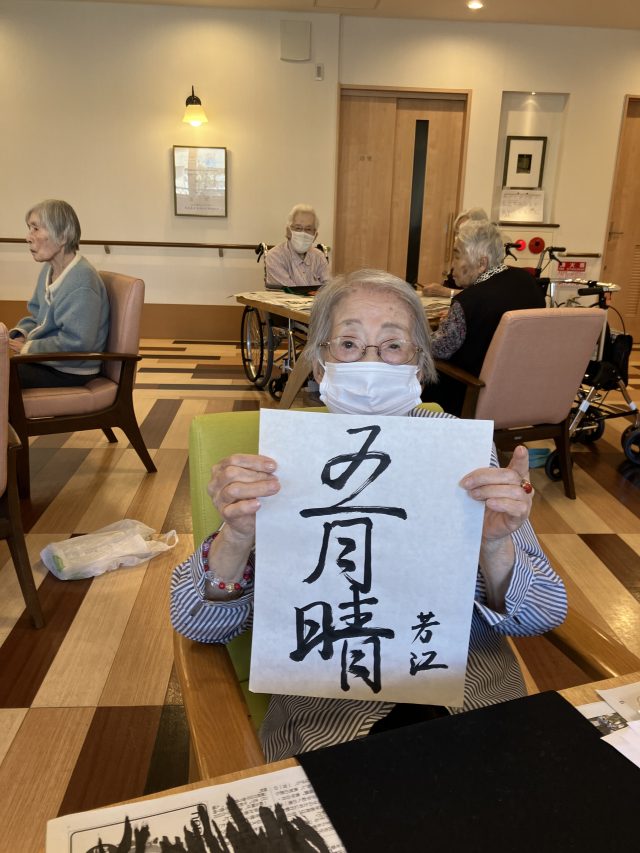 五月晴
芳江